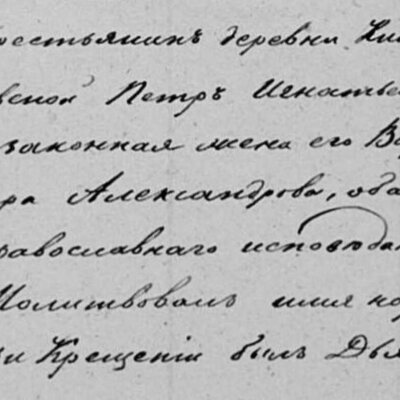 рестьянинъ деревни Ки
вской Петръ Игнатье
законная жена его Ва
ра Александрова, оба
равославнаго исповѣда
Молитвовалъ имя на
и Крещеніи былъ Дья